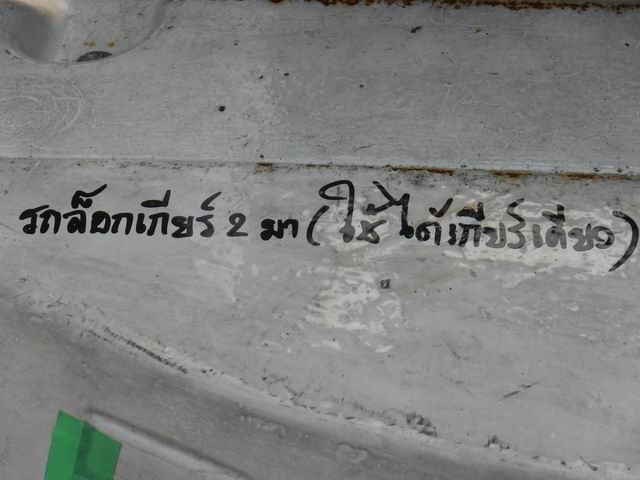 รถล็อกเกียร์ 2 มา (ใช้ได้เกียร์เดียว)